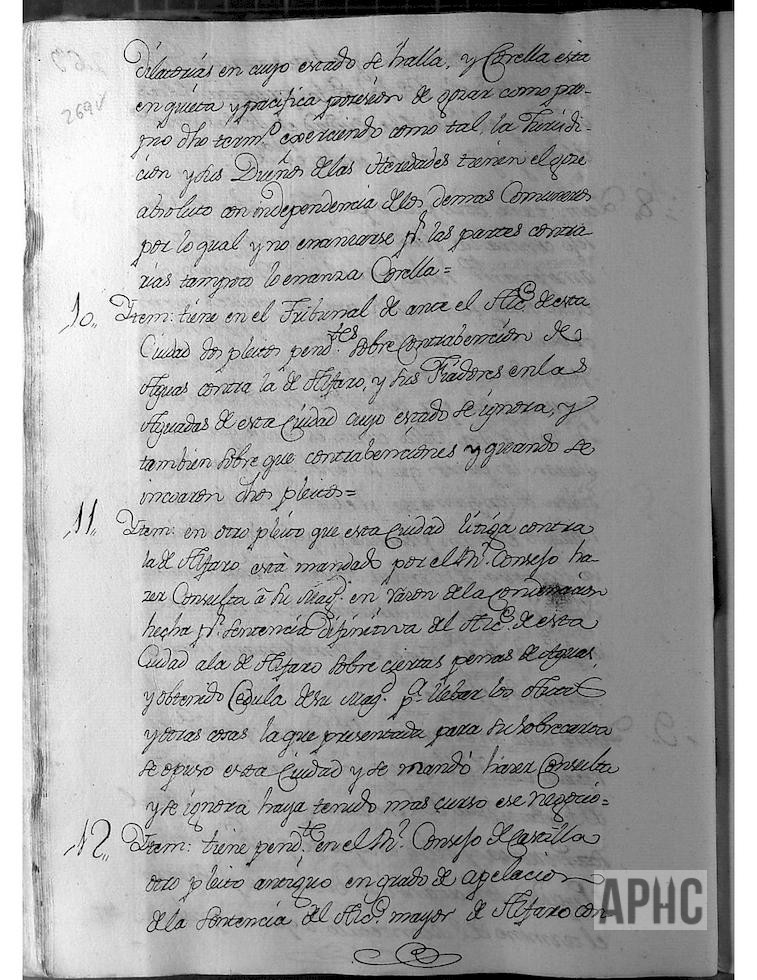 269v
dilatorias en cuyo estado se halla, y Corella esta
en quieta y pacifica posesion de gozar como pro-
prio dho term.º exerciendo como tal, la Jurisdi-
cion y sus Dueños de las Heredades tienen el goze
absoluto con independencia de los demas Comuneros
por lo qual y no enanzarse p.r las partes contra
rias tampoco lo enanza Corella=
10,, Ytem: tiene en el Tribunal de ante el Alc.e de esta
Ciudad dos pleitos pend.tes sobre Contrabencion de
Aguas contra la de Alfaro, y sus Fiadores en las
Aguadas de esta Ciudad cuyo estado se ignora, y
tambien sobre que contrabenciones y quando se
incoaron dhos pleitos=
11,, Ytem: en otro pleito que esta Ciudad litiga contra
la de Alfaro está mandado por el R.l Consejo ha-
zer Consulta a su Mag.d en razon de la Condenacion
hecha p.r Sentencia Difinitiva del Alc.e de esta
Ciudad a la de Alfaro sobre ciertas penas de Aguas,
y obtenido Cedula de su Mag.d p.a llebar los Autos
y otras cosas la que presentada para su sobrecarta
se opuso esta Ciudad y se mandó házer Consulta
y se ignora haya tenido mas curso ese negocio=
12,, Ytem: tiene pend.te en el R.l Consejo de Castilla
otro pleito antiguo en grado de apelacion
de la Sentencia del Alc.e mayor de Alfaro con-
APHC